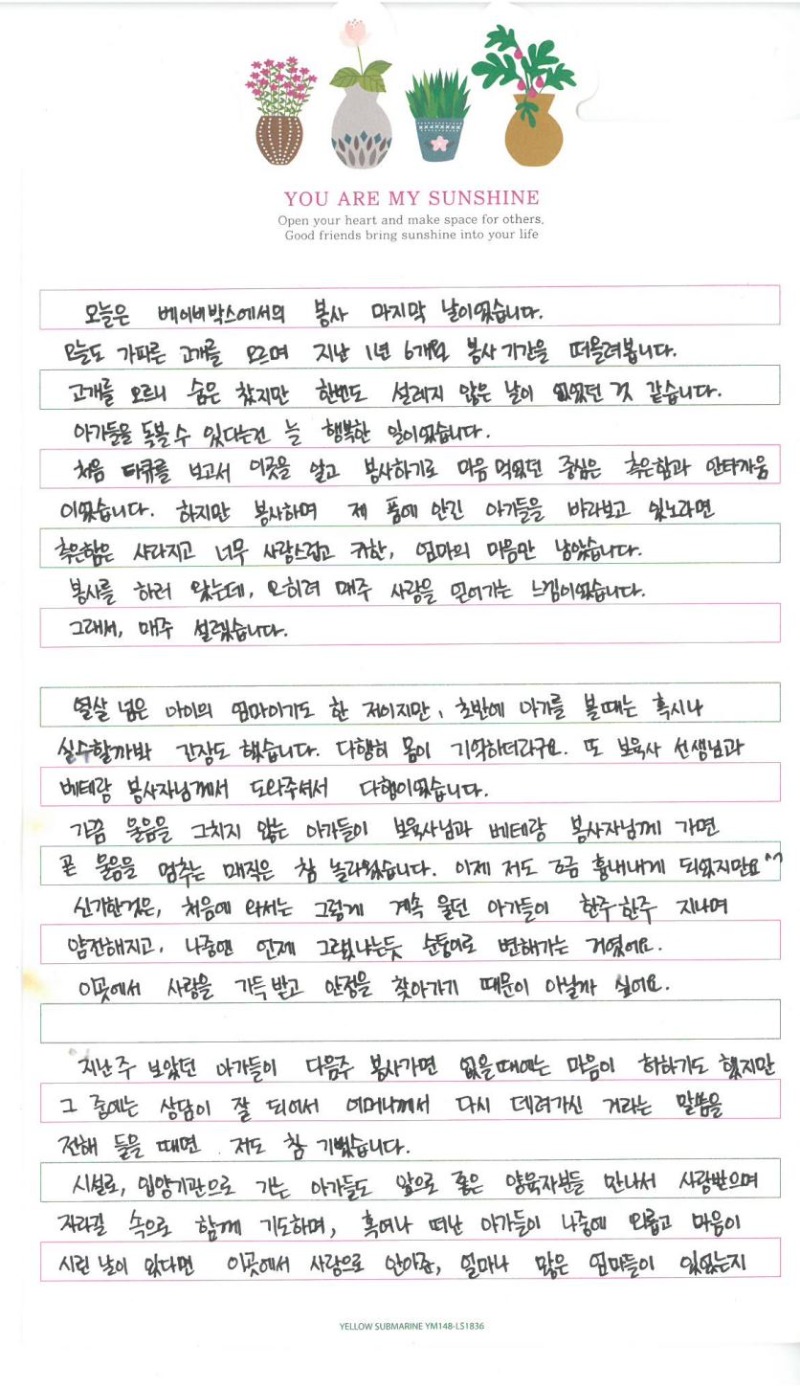 YOU ARE MY SUNSHINE
Open your heart and make space for others,
Good friends bring sunshine into your life
오늘은 베이비박스에서의 봉사 마지막 날이었습니다.
오늘도 가파른 고개를 오르며 지난 1년 6개월 봉사기간을 떠올려봅니다.
고개를 오르니 숨은 찼지만 한번도 설레지 않은 날이 없었던 것 같습니다.
아가들을 돌볼 수 있다는건 늘 행복한 일이었습니다.
처음 다큐를 보고서 이곳을 알고 봉사하기로 마음 먹었던 중심은 측은함과 안타까움
이었습니다. 하지만 봉사하며 제 품에 안긴 아가들을 바라보고 있노라면
측은함은 사라지고 너무 사랑스럽고 귀한, 엄마의 마음만 남았습니다.
봉사를 하러 왔는데, 오히려 매주 사랑을 얻어가는 느낌이었습니다.
그래서, 매주 설렜습니다.
열살 넘은 아이의 엄마이기도 한 저이지만, 초반에 아가를 볼때는 혹시나
실수할까봐 긴장도 했습니다. 다행히 몸이 기억하더라구요. 또 보육사 선생님과
베테랑 봉사자님께서 도와주셔서 다행이었습니다.
가끔 울음을 그치지 않는 아가들이 보육사님과 베테랑 봉사자님께 가면
곧 울음을 멈추는 매직은 참 놀라웠습니다. 이제 저도 조금 흉내내게 되었지만요^^
신기한것은, 처음에 와서는 그렇게 계속 울던 아가들이 한주 한주 지나며
얌전해지고, 나중엔 언제 그랬냐는듯 순둥이로 변해가는 거였어요.
이곳에서 사랑을 가득 받고 안정을 찾아가기 때문이 아닐까 싶어요.
지난주 보았던 아가들이 다음주 봉사가면 없을때에는 마음이 허하기도 했지만
그 중에는 상담이 잘 되어서 어머니께서 다시 데려가신 거라는 말씀을
전해 들을 때면 저도 참 기뻤습니다.
시설로, 입양기관으로 가는 아가들도 앞으로 좋은 양육자분들 만나서 사랑받으며
자라길 속으로 함께 기도하며, 혹여나 떠난 아가들이 나중에 외롭고 마음이
시린 날이 있다면 이곳에서 사랑으로 안아준, 얼마나 많은 엄마들이 있었는지
YELLOW SUBMARINE YM148-LS1836